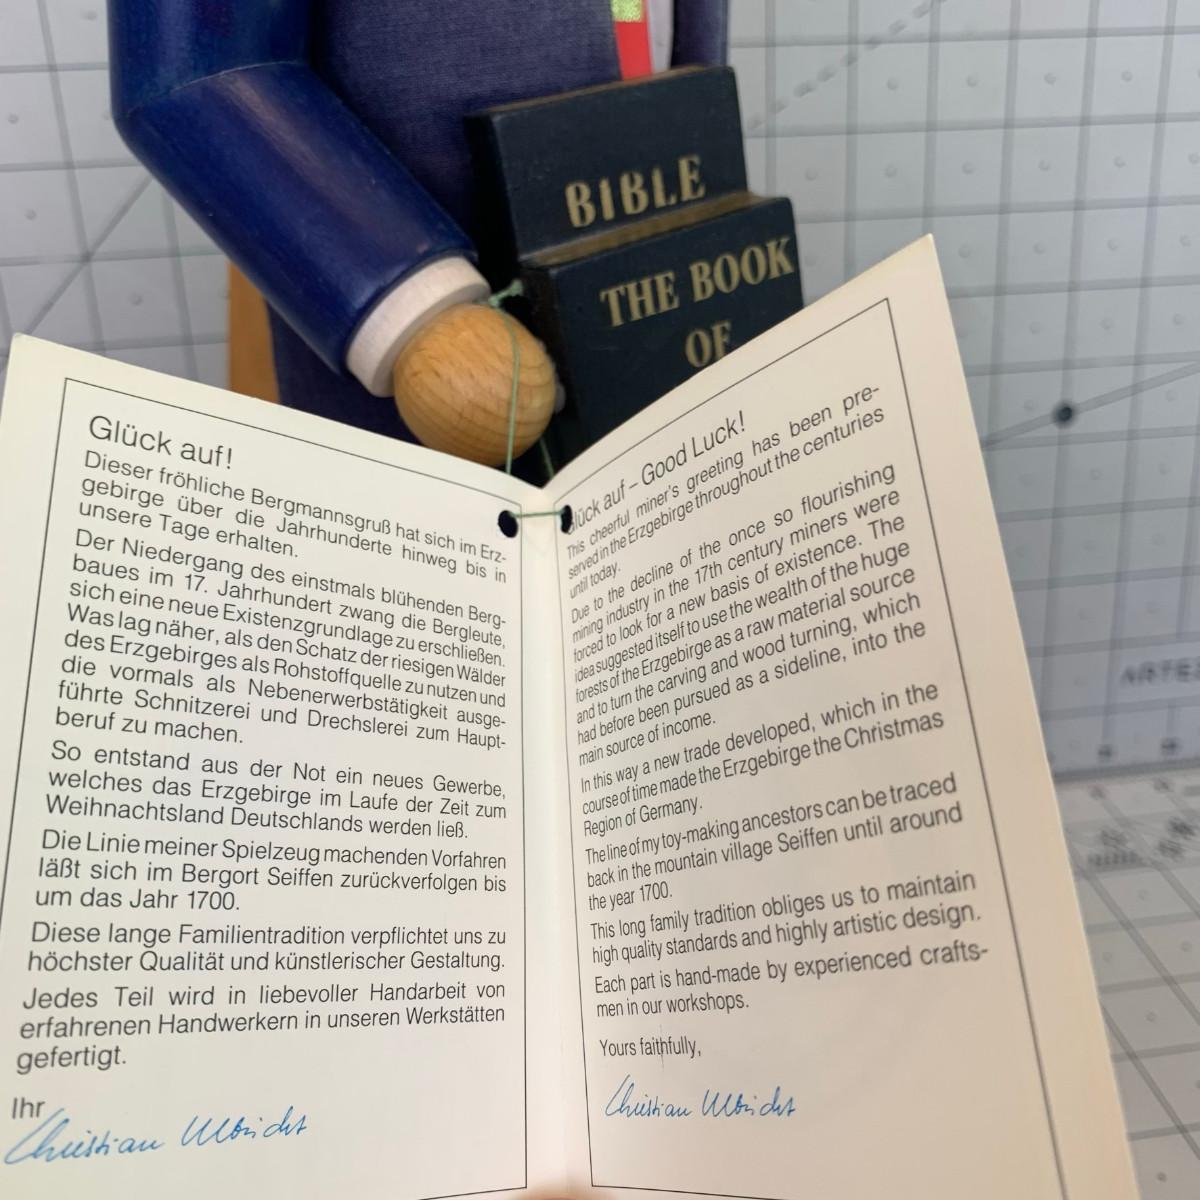 BIBLE
THE BOOK
OF
Glück auf!
Dieser fröhliche Bergmannsgruß hat sich im Erz-
gebirge über die Jahrhunderte hinweg bis in
unsere Tage erhalten.
Der Niedergang des einstmals blühenden Berg-
baues im 17. Jahrhundert zwang die Bergleute,
sich eine neue Existenzgrundlage zu erschließen.
Was lag näher, als den Schatz der riesigen Wälder
des Erzgebirges als Rohstoffquelle zu nutzen und
die vormals als Nebenerwerbstätigkeit ausge-
führte Schnitzerei und Drechslerei zum Haupt-
beruf zu machen.
So entstand aus der Not ein neues Gewerbe,
welches das Erzgebirge im Laufe der Zeit zum
Weihnachtsland Deutschlands werden ließ.
Die Linie meiner Spielzeug machenden Vorfahren
läßt sich im Bergort Seiffen zurückverfolgen bis
um das Jahr 1700.
Diese lange Familientradition verpflichtet uns zu
höchster Qualität und künstlerischer Gestaltung.
Jedes Teil wird in liebevoller Handarbeit von
erfahrenen Handwerkern in unseren Werkstätten
gefertigt.
Ihr
Christian Ulbricht
Glück auf – Good Luck!
This cheerful miner's greeting has been pre-
served in the Erzgebirge throughout the centuries
until today.
Due to the decline of the once so flourishing
mining industry in the 17th century miners were
forced to look for a new basis of existence. The
idea suggested itself to use the wealth of the huge
forests of the Erzgebirge as a raw material source
and to turn the carving and wood turning, which
had before been pursued as a sideline, into the
main source of income.
In this way a new trade developed, which in the
course of time made the Erzgebirge the Christmas
Region of Germany.
The line of my toy-making ancestors can be traced
back in the mountain village Seiffen until around
the year 1700.
This long family tradition obliges us to maintain
high quality standards and highly artistic design.
Each part is hand-made by experienced crafts-
men in our workshops.
Yours faithfully,
Christian Ulbricht